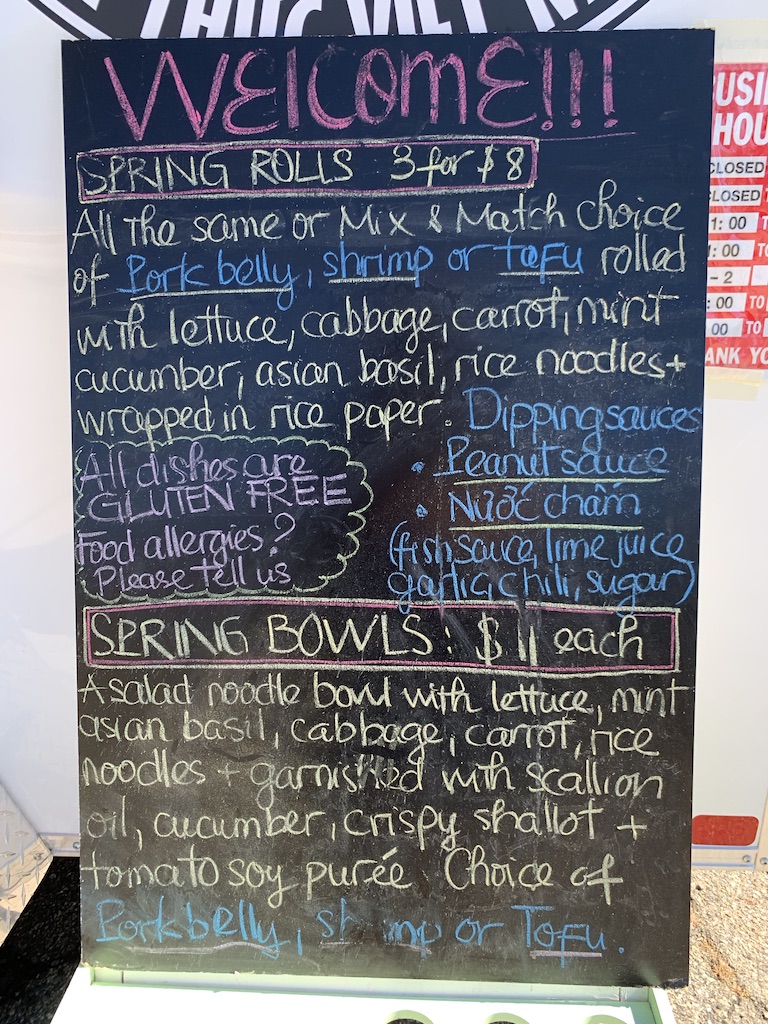 WELCOME!!!
SPRING ROLLS 3 for $8
All the same or Mix & Match choice
of Pork belly, shrimp or tofu rolled
with lettuce, cabbage, carrot, mint
cucumber, asian basil, rice noodles +
wrapped in rice paper. Dipping sauces
All dishes are
GLUTEN FREE
Food allergies?
Please tell us
• Peanut sauce
• Nước chấm
(fish sauce, lime juice,
garlic, chili, sugar)
SPRING BOWLS: $11 each
A salad noodle bowl with lettuce, mint
asian basil, cabbage, carrot, rice
noodles + garnished with scallion
oil, cucumber, crispy shallot +
tomato soy purée Choice of
Pork belly, shrimp or Tofu.
CLOSED
CLOSED
1:00
:00
-2
:00 TO
00 TO